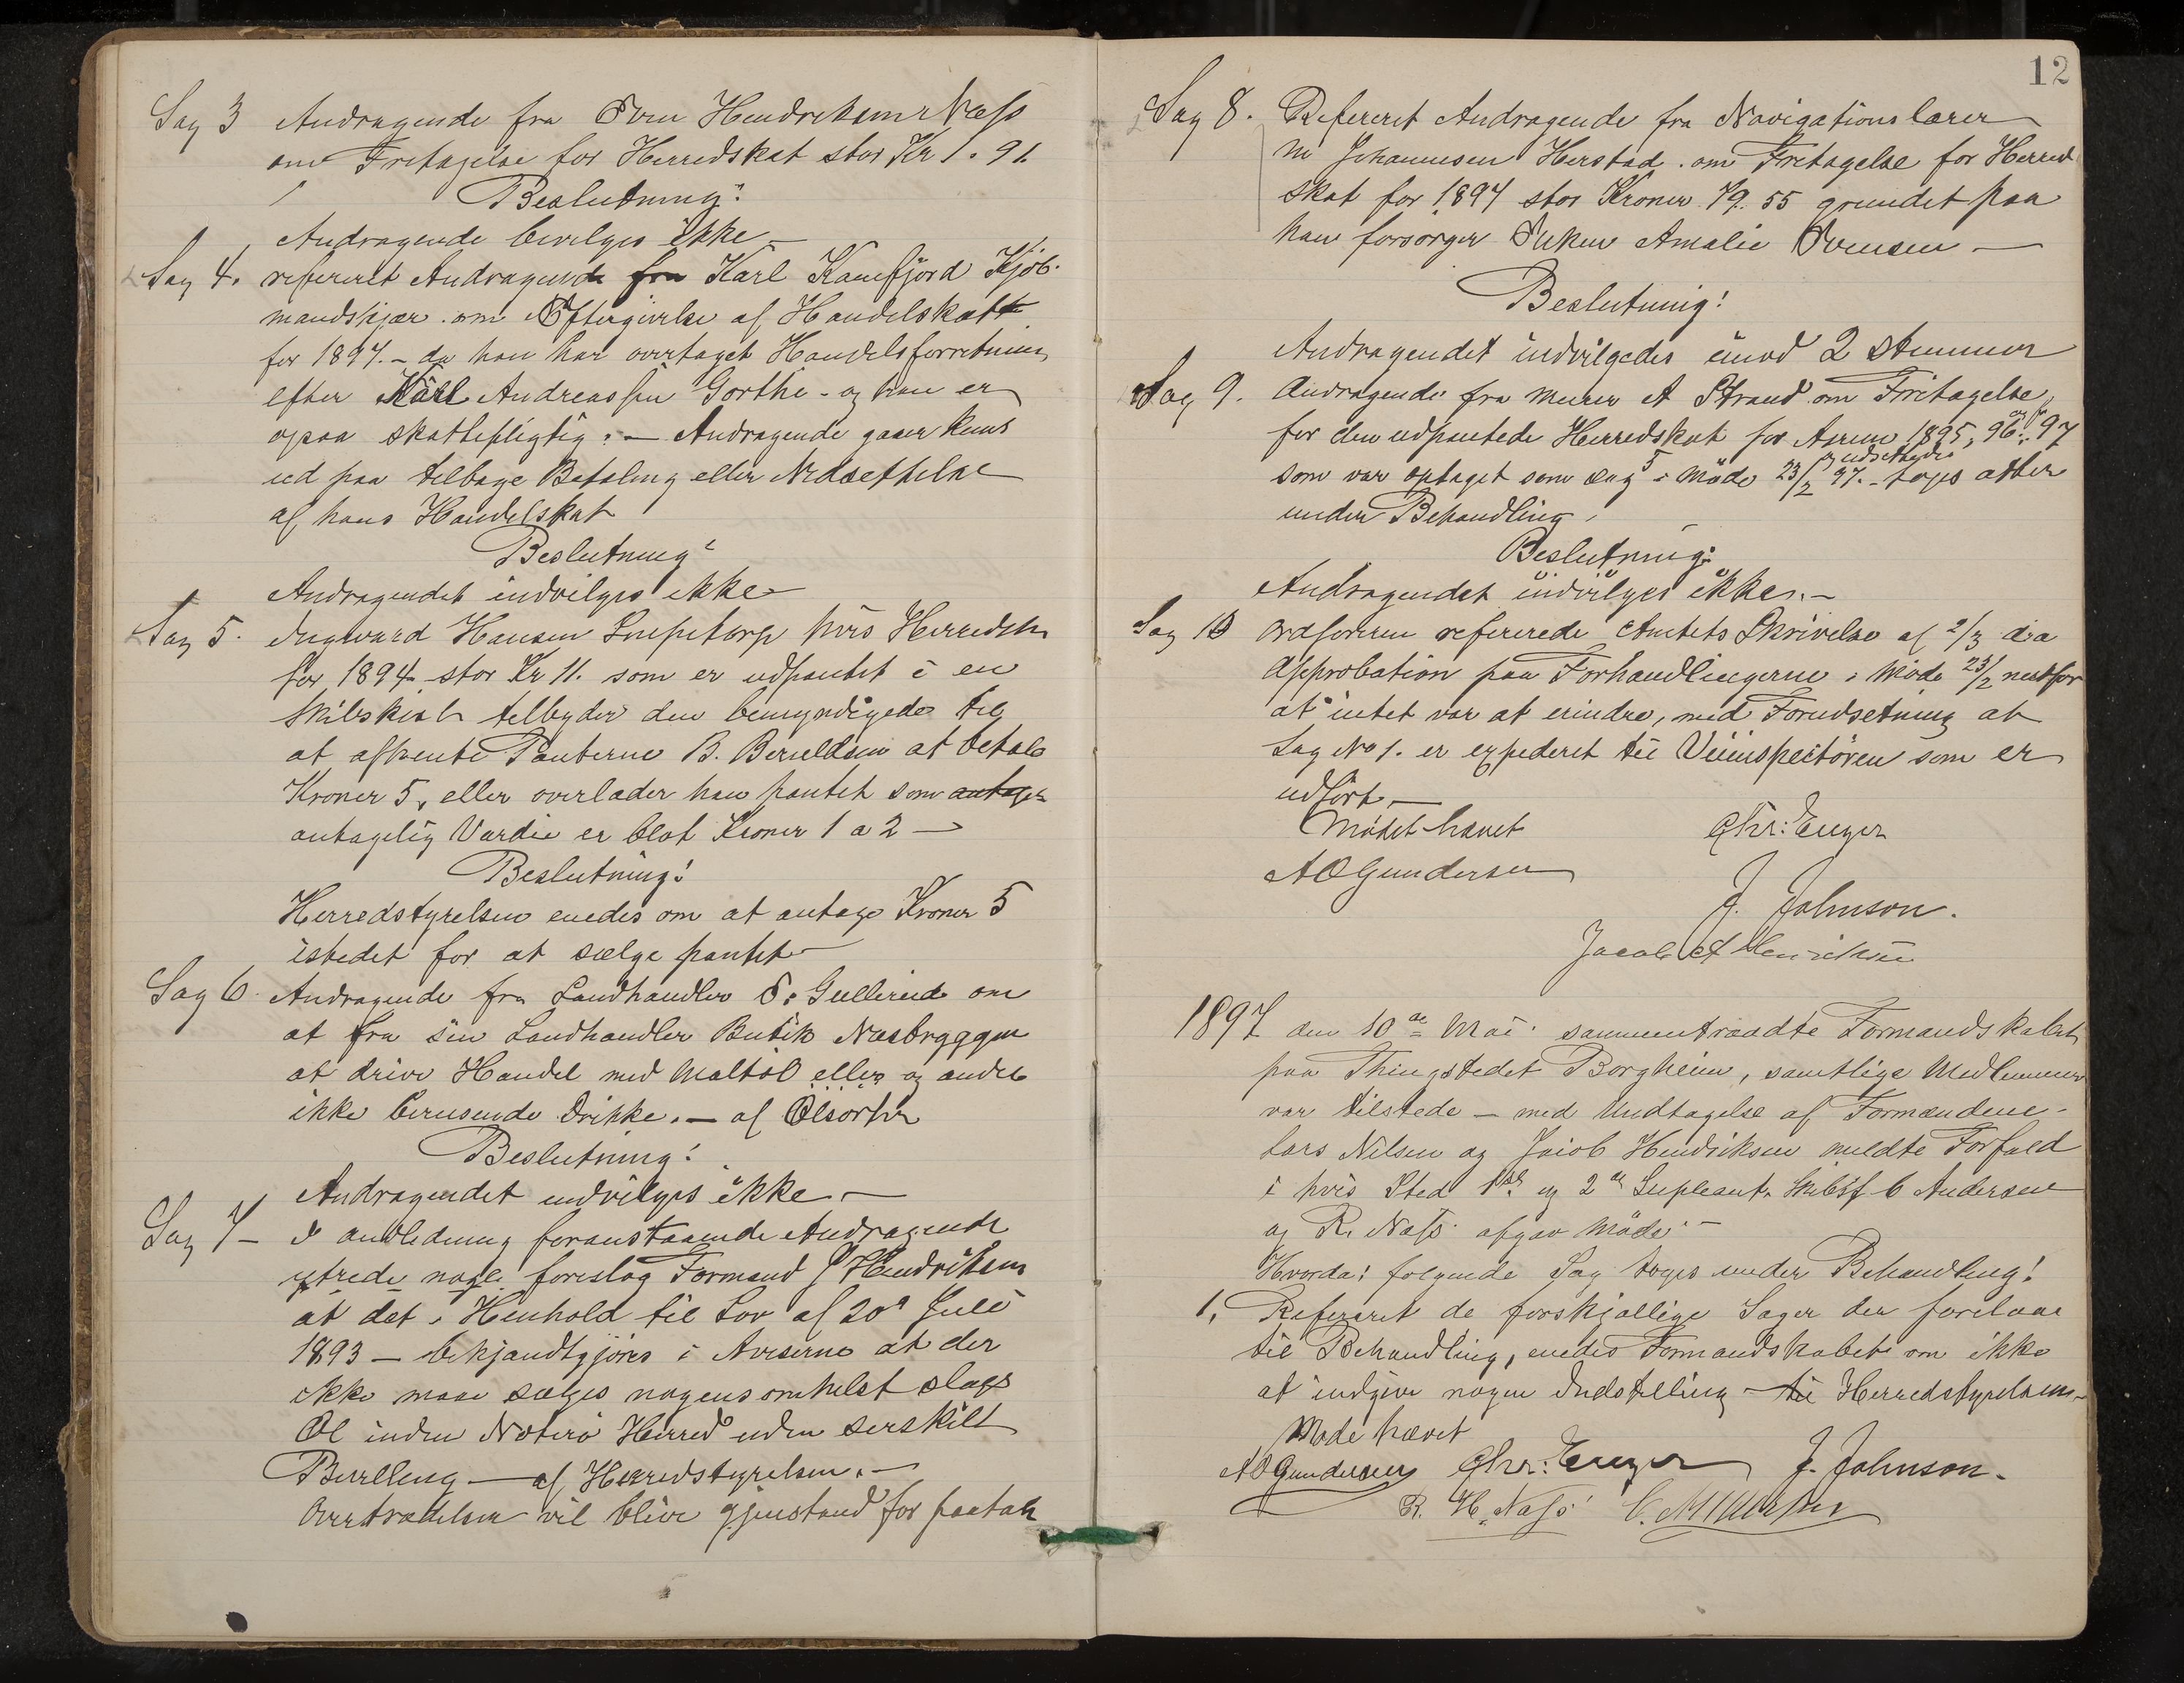 Sag 3 Andragende fra Sven Hendriksen Næss
om Fritagelse for Herredskat stor Kr 1.91.
Beslutning:
Andragende bevilges ikke
Sag 4. refererelt Andragende fra Karl Kamfjord Kjöb-
mandskjær om Eftergivelse af Handelskatt
for 1897. – da han har overtaget Handelsforretning
efter Karl Andreassen Gorthe - og han er
ogsaa skattepligtig. — Andragende gaaer kuns
ud paa tilbage Betaling eller Nedsættelse
af hans Handelskat
Beslutning:
Andragendet indvilges ikke
Sag 5. Ingvard Hansen hvis Herredsk
for 1894 stor Kr 11. som er udpantet i en
tilbyder den bemyndigede til
at afhente Panterne B. at betale
Kroner 5, eller overlader han pantet som antages
antagelig Værdie er blot Kroner 1 a 2 —
Beslutning:
Herredstyrelsen enedes om at antage Kroner 5
istedet for at sælge pantet
Sag 6. Andragende fra Landhandler om
at fra sin Landhandler Butik Næsbryggen
at drive Handel med Maltöl eller og andre
ikke berusende drikke. — af Ölsorter
Beslutning:
Andragendet indvilges ikke. —
Sag 7 – I anledning foranstaaende Andragende
ytrede nogle foreslog Formand J Hendriksen
at det i Henhold til Lov af 20de Juli
1893 — bekjandtgjöres i Aviserne at der
ikke maae sælges nogensomhelst slags
Öl inden Nöterö Herred uden serskilt
Bevilling — af Herredstyrelsen. —
Overtrædelser vil blive gjenstand for paatale
12
Sag 8. Refereret Andragende fra Navigationslærer
M Johannesen Herstad. om Fritagelse for Herred
skat for 1894 stor Kroner 19.55 grundet paa
han forsörger Enken Amalie Svensen —
Beslutning:
Andragendet indvilgedes imod 2 stemmer
Sag 9. Andragende fra Murer A Strand om Fritagelse
for den udpantede Herredskat for Aarene 1895, 96 og 97
som var optaget som sag 5 i Möde 23/2 97. og udsettedes - toges atter
under Behandling
Beslutning:
Andragendet indvilges ikke. —
Sag 10 Ordföreren refererede Amtets Skrivelse af 2/3 d.a
Approbation paa Forhandlingerne i Möde 23/2
at intet var at erindre, med Forudsetning at
Sag No 1. er expederet til Veiinspectören som er
udfört. —
Mödet hævet Chr: Enger
A O Gundersen
J. Johnson.
Jacob A Henriksen
1897 den 10de Mai sammentraadte Formandskabet
paa Thingstedet Borgheim, samtlige Medlemmer
var tilstede — med Undtagelse af Formændene
Lars Nilsen og Jacob Hendriksen meldte Forfald
i hvis Sted 1ste og 2de Supleant. Andersen
og R. Næss afgav Möde —
Hvorda: folgende Sag toges under Behandling:
1. Refereret de forskjellige Sager der forelaae
til Behandling, enedes Formandskabet om ikke
at indgive nogen Indstilling til Herredstyrelsen
Möde hævet
A O Gundersen Chr: Enger J. Johnson.
R. H. Næss